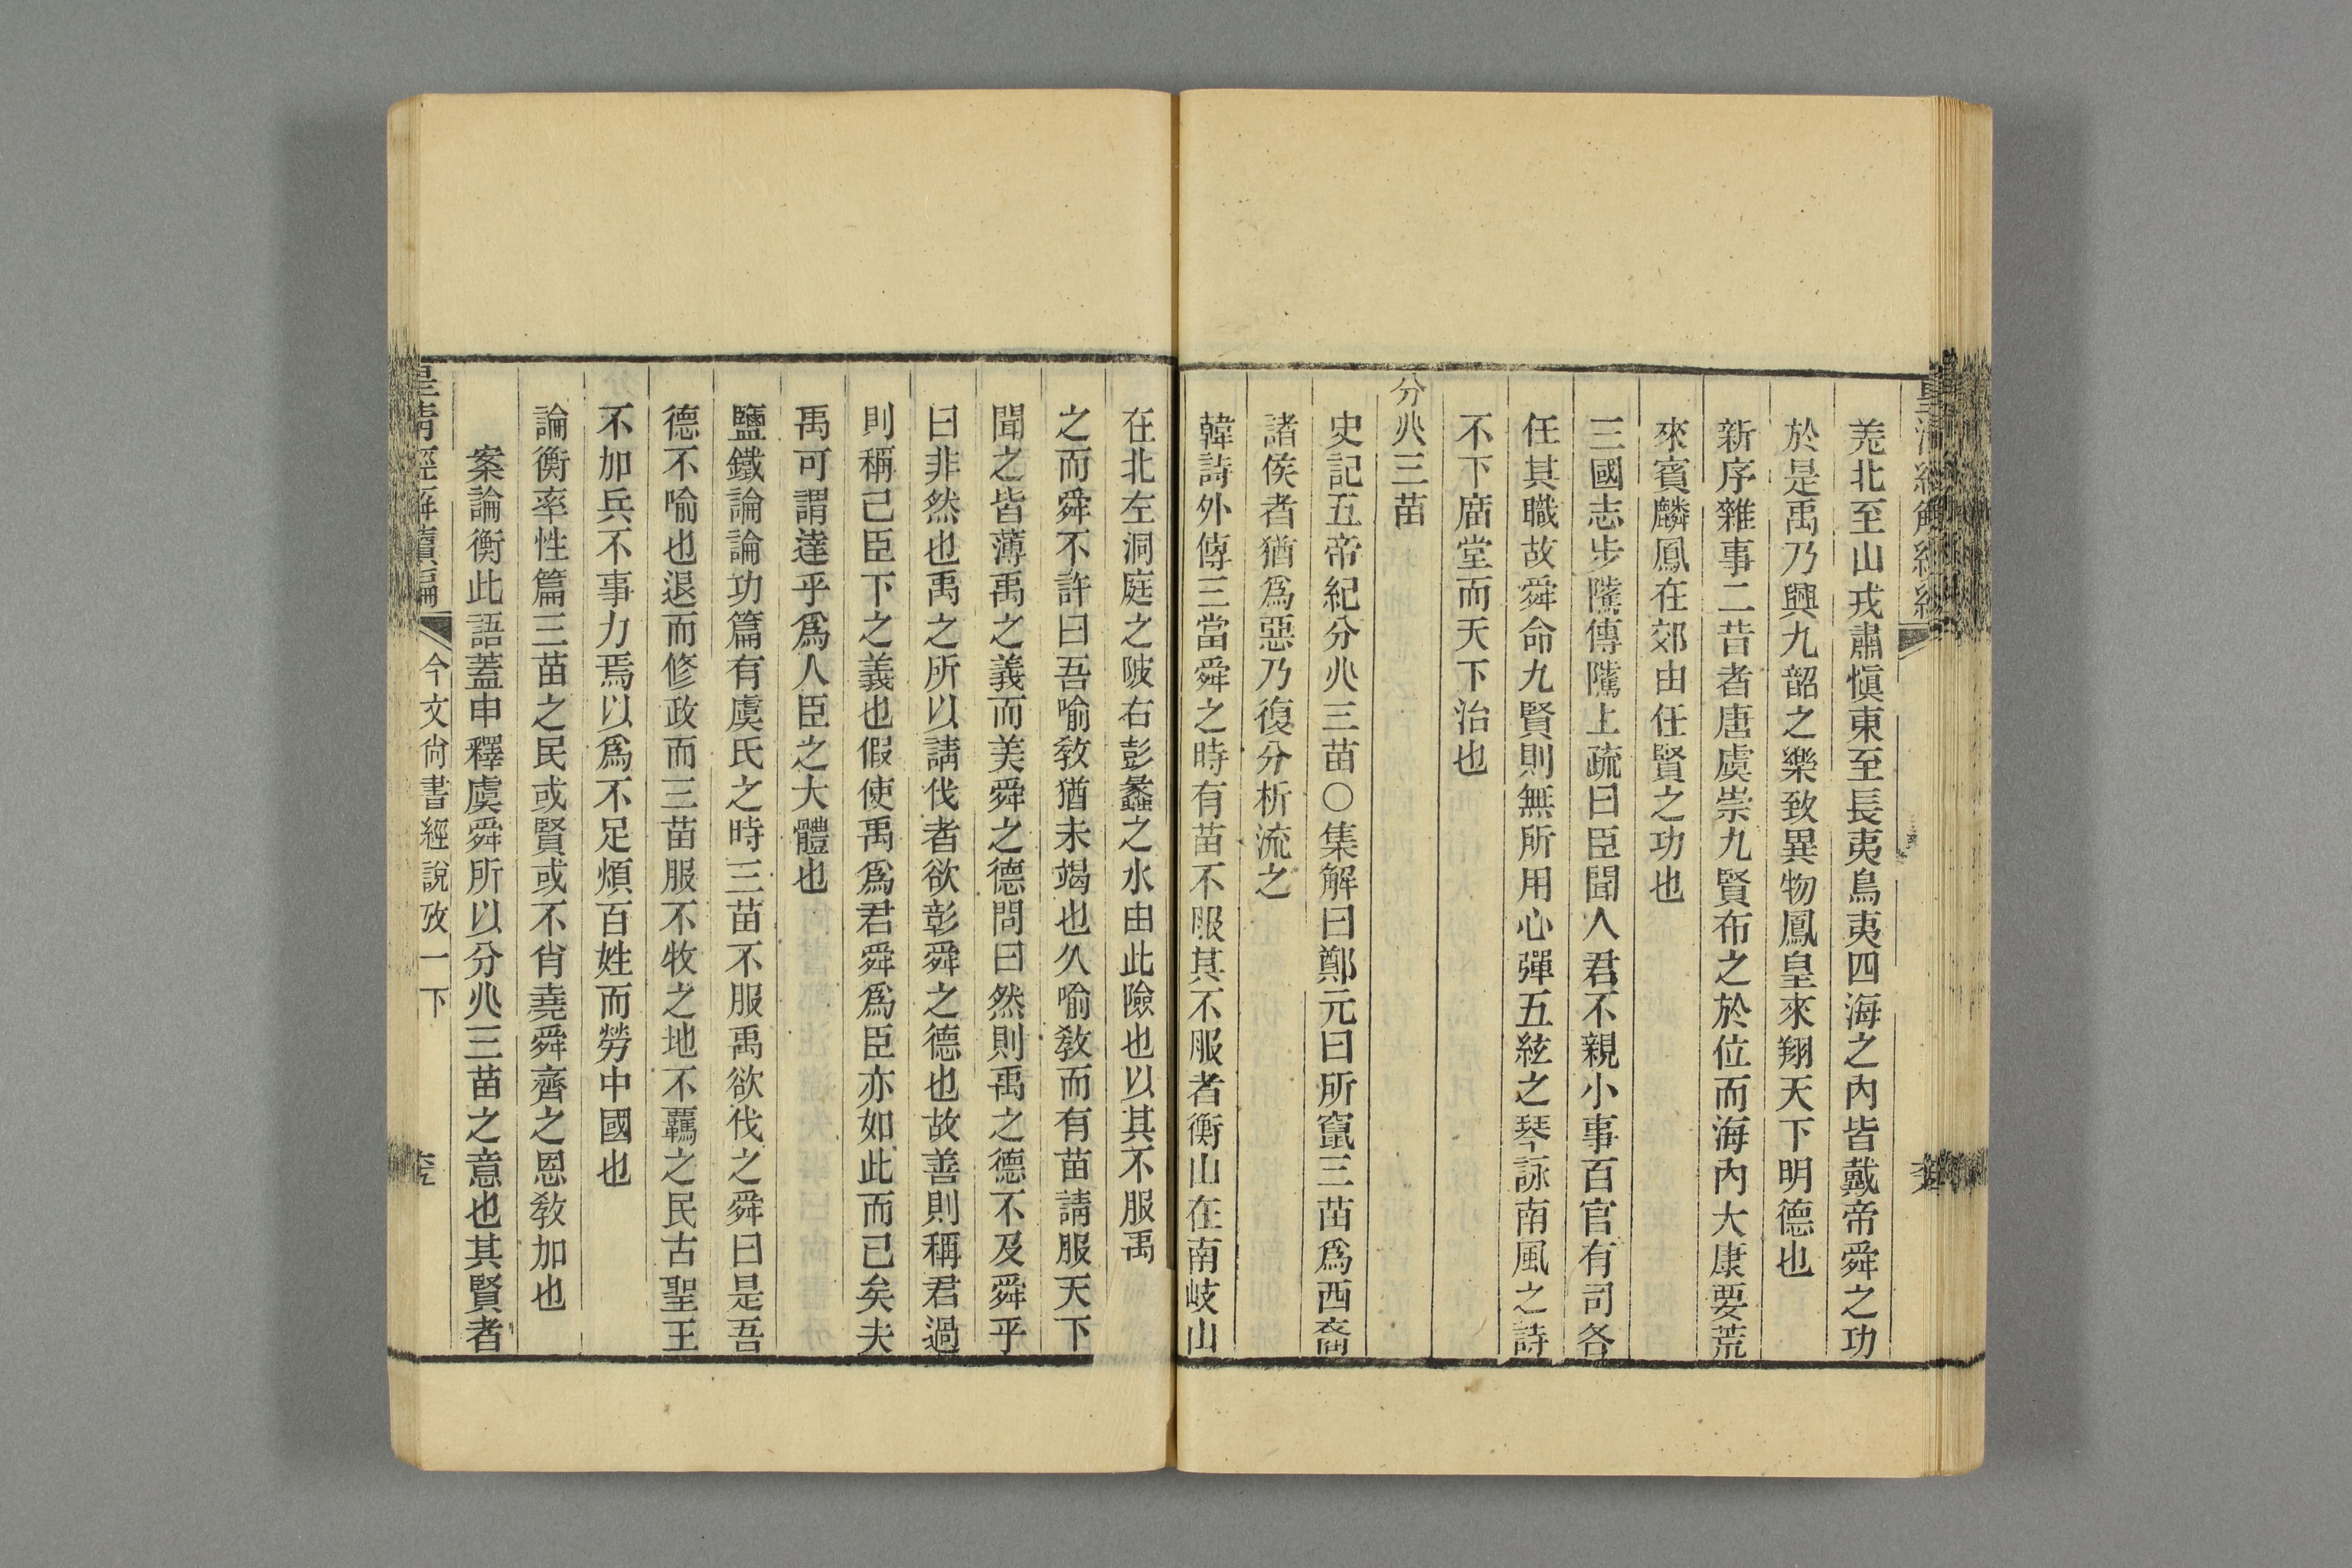 羗北至山戎肅愼東至長夷鳥夷四海之內皆戴帝舜之功
於是禹乃興九韶之樂致異物鳳皇來翔天下明德也
新序雜事二昔者唐虞崇九賢布之於位而海內大康要荒
來賓麟鳳在郊由任賢之功也
三國志步隲傳隲上疏曰臣聞人君不親小事百官有司各
任其職故舜命九賢則無所用心彈五絃之琴詠南風之詩
不下庿堂而天下治也
分𠔁三苗
史記五帝紀分𠔁三苗○集解曰鄭元曰所竄三苗爲西裔
諸侯者猶爲惡乃復分析流之
韓詩外傳三當舜之時有苗不服其不服者衡山在南岐山
在北左洞庭之陂右彭蠡之水由此險也以其不服禹
之而舜不許曰吾喻敎猶未竭也久喻敎而有苗請服天下
聞之皆薄禹之義而美舜之德問曰然則禹之德不及舜乎
曰非然也禹之所以請伐者欲彰舜之德也故善則稱君過
則稱己臣下之義也假使禹爲君舜爲臣亦如此而已矣夫
禹可謂達乎爲人臣之大體也
鹽鐵論論功篇有虞氏之時三苗不服禹欲伐之舜曰是吾
德不喻也退而修政而三苗服不牧之地不羈之民古聖王
不加兵不事力焉以爲不足煩百姓而勞中國也
論衡率性篇三苗之民或賢或不肖堯舜齊之恩敎加也
案論衡此語蓋申釋虞舜所以分𠔁三苗之意也其賢者
皇淸經解續編
今文尙書經說攷一下